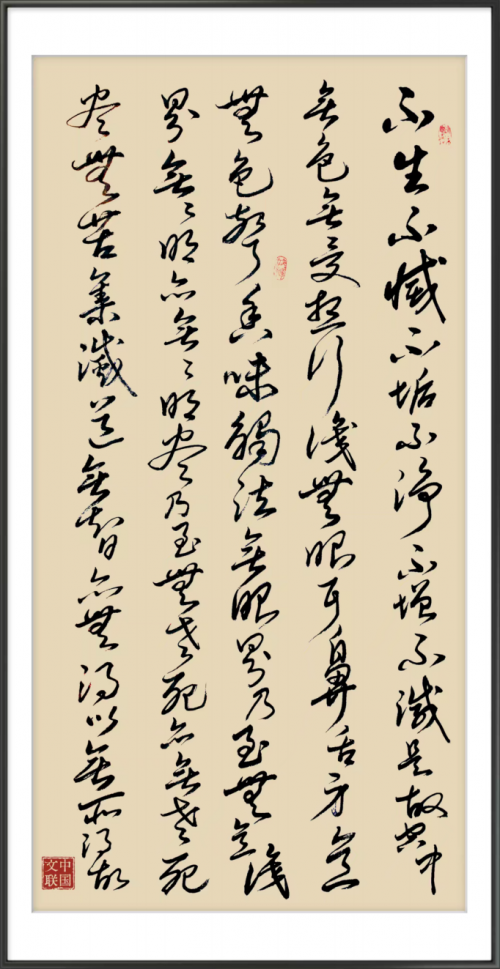 不生不滅不垢不淨不增不減是故空中
無色無受想行識無眼耳鼻舌身意
無色聲香味觸法無眼界乃至無意識
界無〻明亦無〻明盡乃至無老死亦無老死
盡無苦集滅道無智亦無得以無所得故
中国
文联